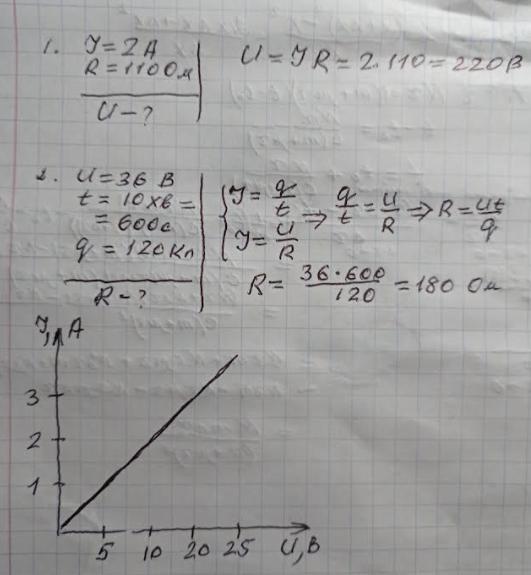 1. I = 2 А
R = 110 Ом
U = IR = 2·110 = 220 В
U – ?
2. U = 36 В
t = 10 хв =
= 600 с
q = 120 Кл
R – ?
{ I = q/t
I = U/R
⇒ q/t = U/R ⇒ R = Ut/q
R = 36·600/120 = 180 Ом
I, А
3
2
1
5 10 20 25 U, В